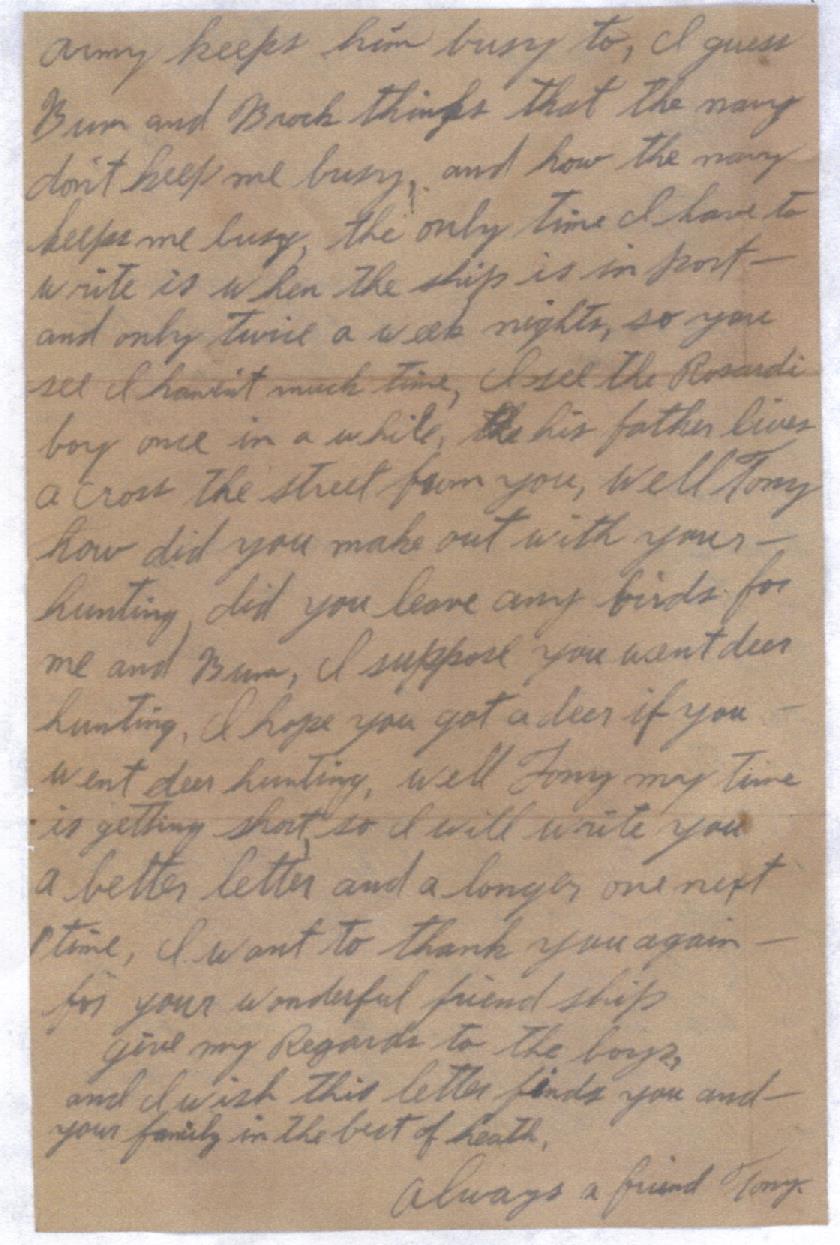 army keeps him busy to, I guess
Bum and Brock thinks that the navy
don't keep me busy, and how the navy
keeps me busy, the only time I have to
write is when the ship is in port—
and only twice a week nights, so you
see I haven't much time, I see the Rosardi
boy once in a while, the his father lives
a cross the street from you, well Tony
how did you make out with your—
hunting, did you leave any birds for
me and Bum, I suppose you went deer
hunting, I hope you got a deer if you —
went deer hunting, well Tony my time
is getting short, so I will write you
a better letter and a longer one next
time, I want to thank you again —
for your wonderful friend ship
give my Regards to the boys,
and I wish this letter finds you and—
your family in the best of heath,
Always a friend Tony.